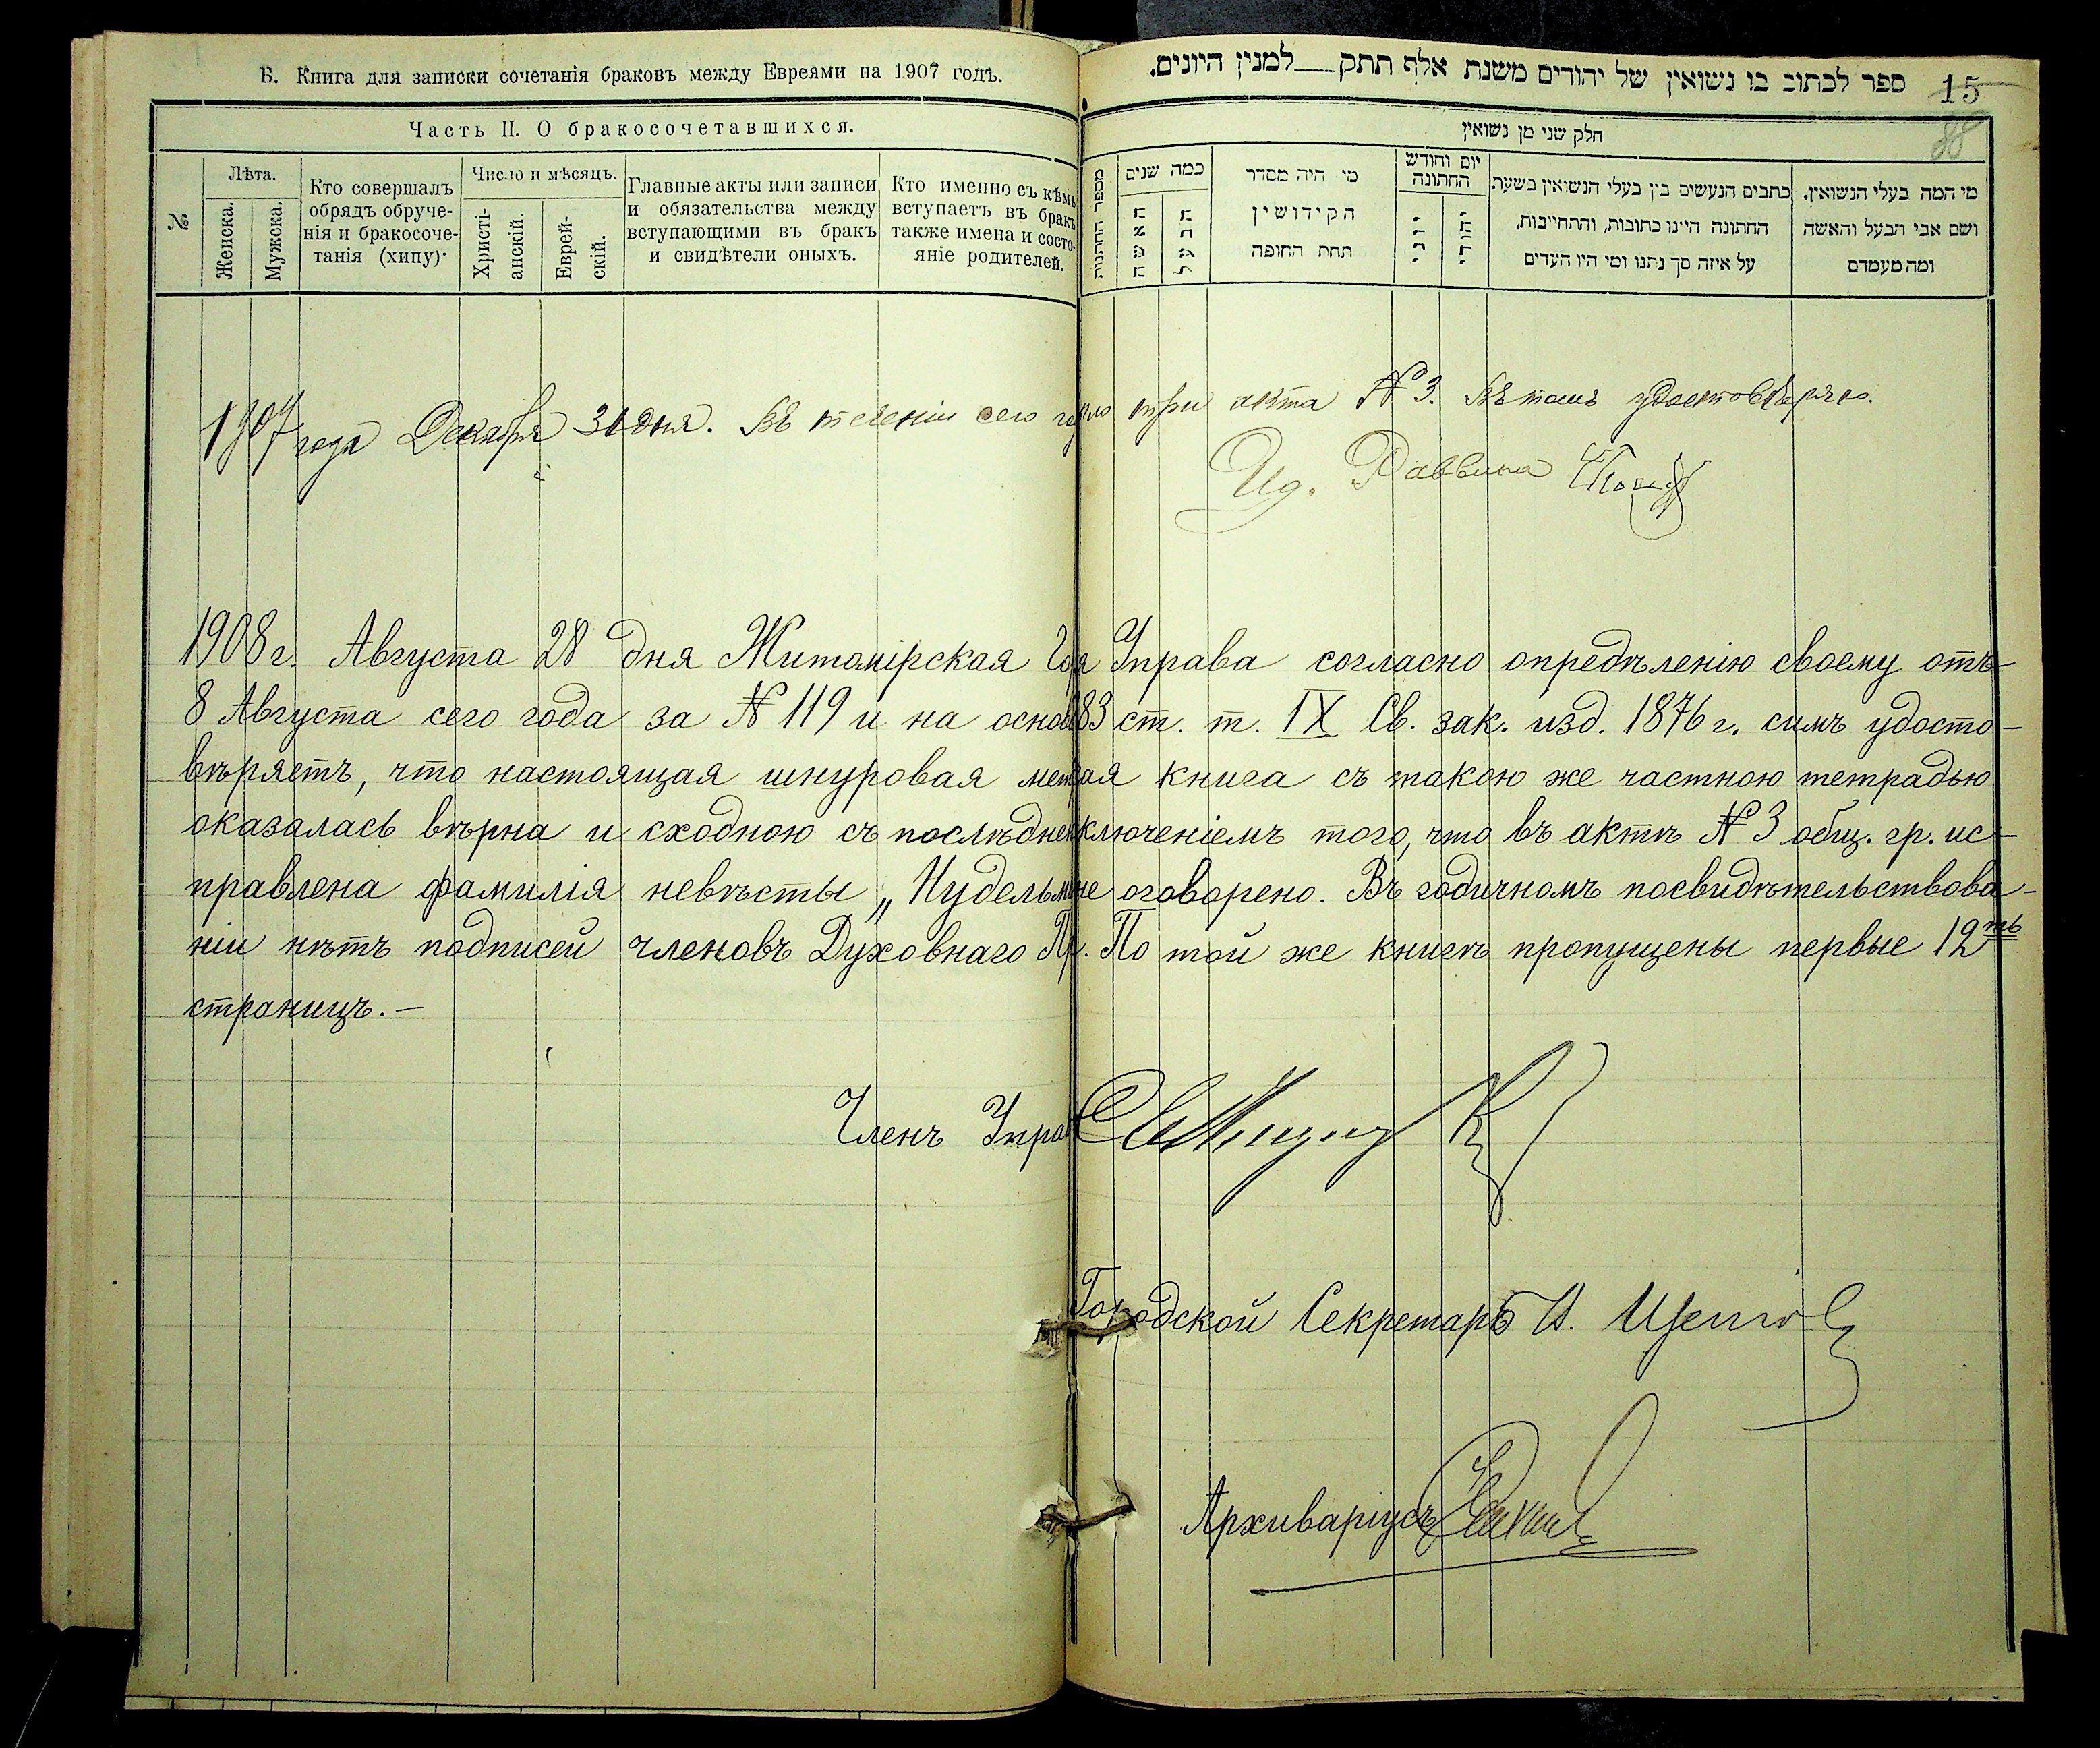 Б. Книга для записки сочетанія браковъ между Евреями на 1907 годъ.
ספר לכתוב בו נשואין של יהודים משנת אלף תתק — למנין היונים.
15
88
Часть II. О бракосочетавшихся.
חלק שני מן נשואין
№
Лѣта.
Женска.
Мужска.
Кто совершалъ
обрядъ обруче-
нія и бракосоче-
танія (хипу).
Число и мѣсяцъ.
Христі-
анскій.
Еврей-
скій.
Главные акты или записи
и обязательства между
вступающими въ бракъ
и свидѣтели оныхъ.
Кто именно съ кѣмъ
вступаетъ въ бракъ
также имена и состо-
яніе родителей.
מספר החתונות
כמה שנים
האשה
הבעל
מי היה מסדר
הקידושין
תחת החופה
יום וחודש
החתונה
יוני
יהודי
כתבים הנעשים בין בעלי הנשואין בשעת
החתונה היינו כתובות, והתחייבות,
על איזה סך נתנו ומי היו העדים
מי המה בעלי הנשואין.
ושם אבי הבעל והאשה
ומה מעמדם
1907 года Декабря 31 дня. Въ теченіи сего го три акта №3. Въ томъ удостовѣряю.
Ид. Раввина
1908 г. Августа 28 дня Житомірская Гор Управа согласно опредѣленію своему отъ
8 Августа сего года за № 119 и на основ 83 ст. т. IX Св. зак. изд. 1876 г. симъ удосто-
вѣряетъ, что настоящая шнуровая мет ая книга съ такою же частною тетрадью
оказалась вѣрна и сходною съ послѣдне ключеніемъ того, что въ актѣ № 3 общ. гр. ис-
правлена фамилія невѣсты „Нудельм не оговорено. Въ годичномъ посвидѣтельствова-
ніи нѣтъ подписей членовъ Духовнаго Пр. По той же книгѣ пропущены первые 12ть
страницъ.—
Членъ Управ
Городской Секретарь И.
Архиваріусъ